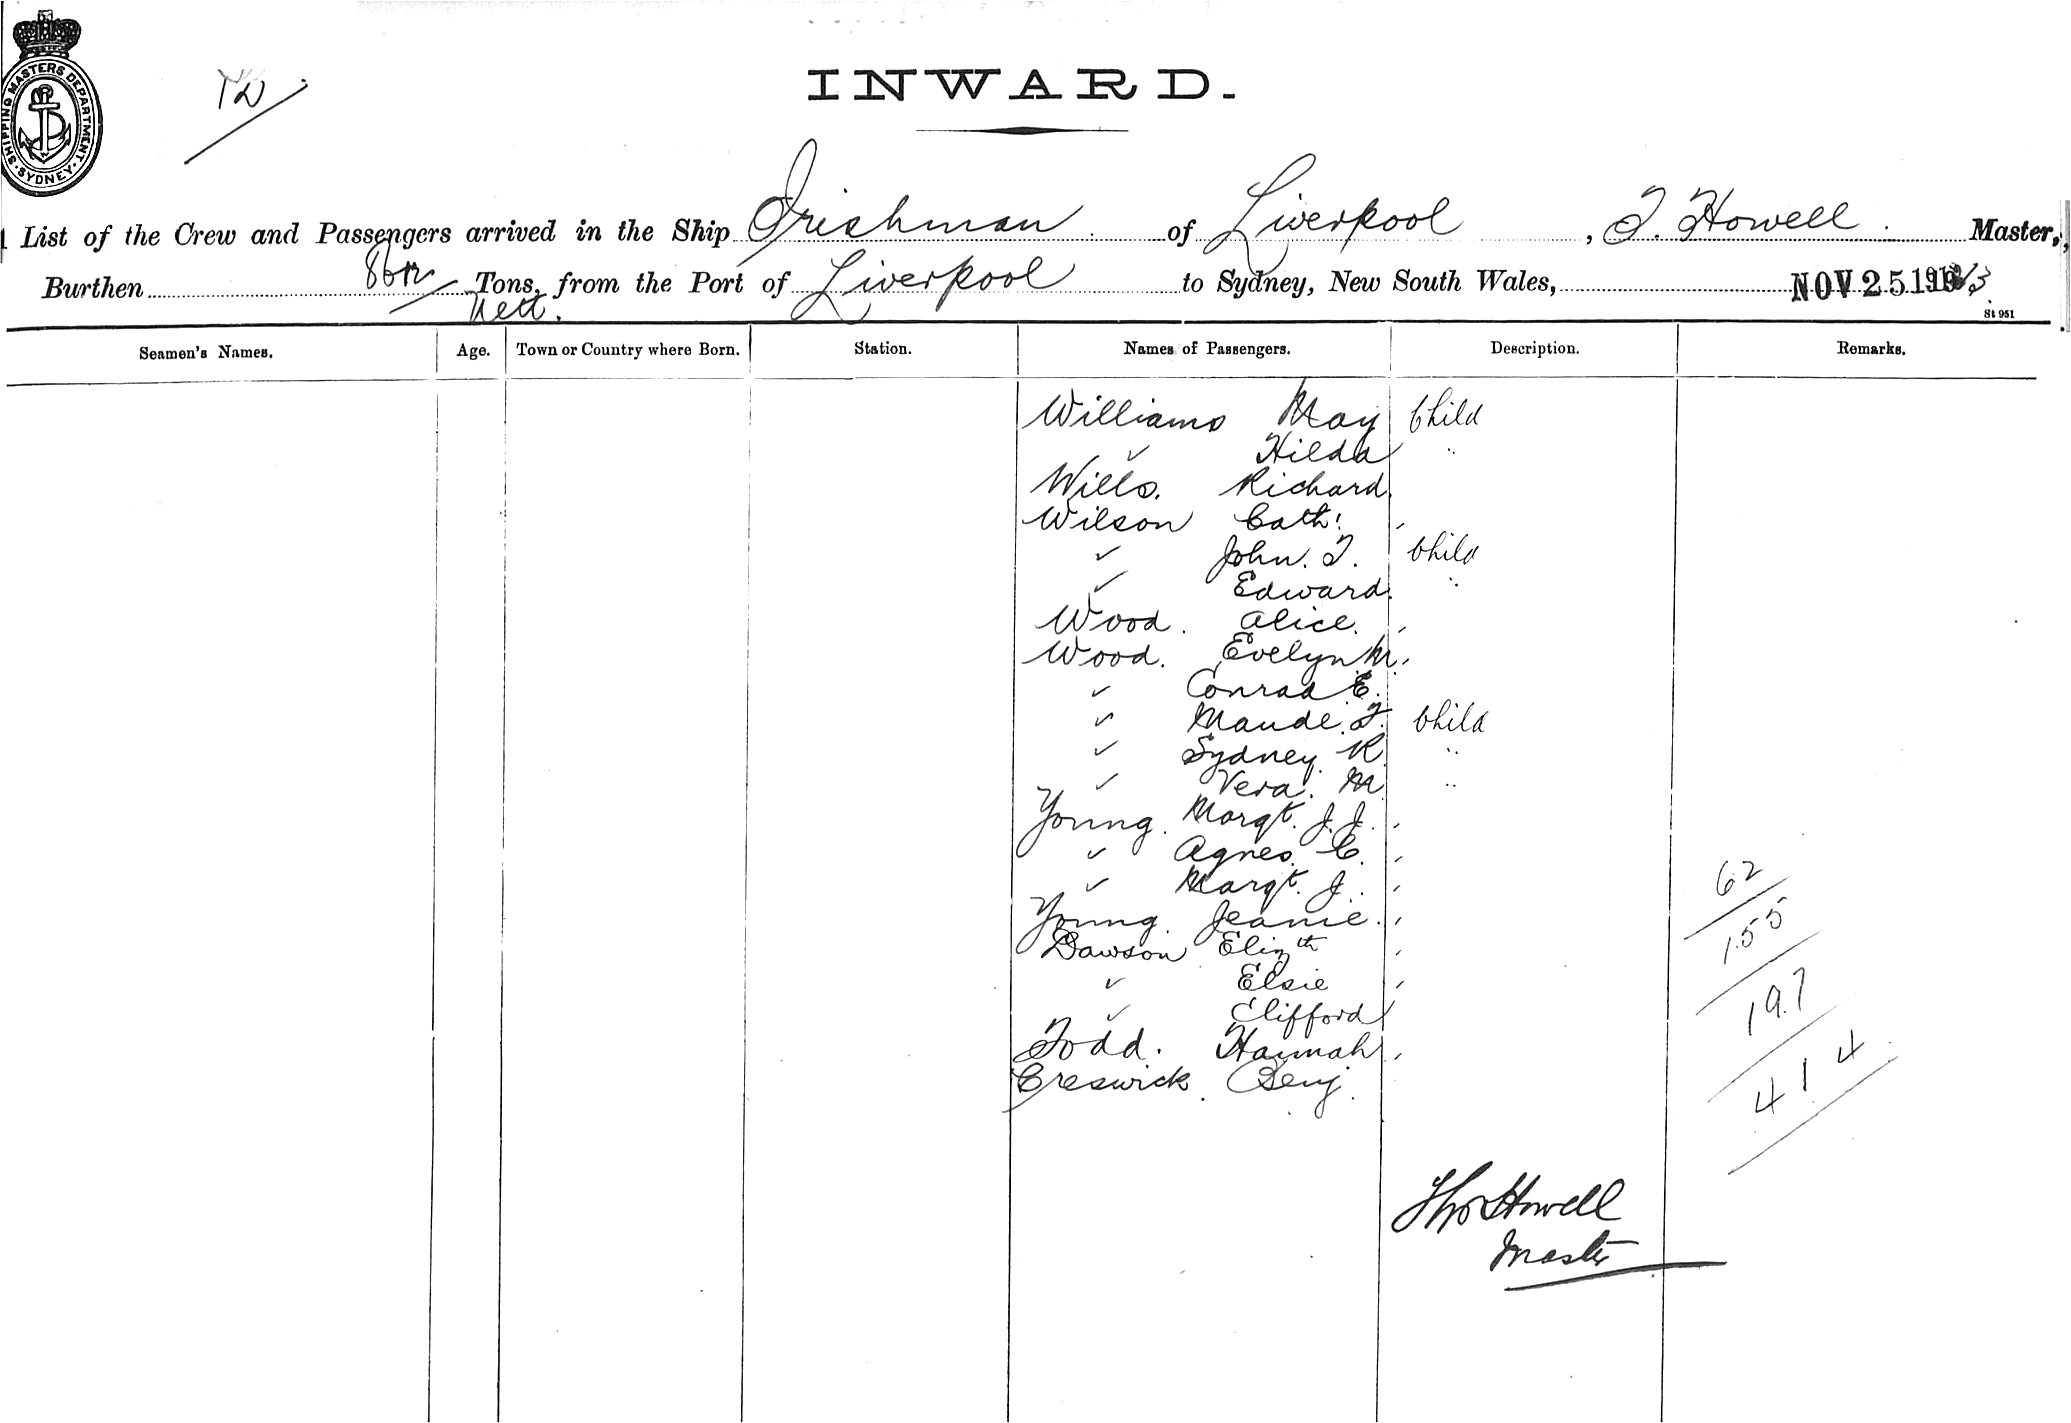 SHIPPING MASTERS DEPARTMENT. SYDNEY.
INWARD.
List of the Crew and Passengers arrived in the Ship Irishman of Liverpool, T. Howell Master,
Burthen Tons, from the Port of Liverpool to Sydney, New South Wales, NOV 25 1913
Nett.
St 951
Seamen's Names. Age. Town or Country where Born. Station. Names of Passengers. Description. Remarks.
Williams May Child
✓ Hilda "
Wills. Richard.
Wilson Cath:
✓ John. T. Child
✓ Edward. "
Wood. Alice.
Wood. Evelyn M.
✓ Conrad E.
✓ Maude. T. Child
✓ Sydney. R "
✓ Vera. M "
Young. Margt. J. J.
✓ Agnes. C.
✓ Margt. J.
Young. Jeanie.
Dawson Elizth
✓ Elsie
✓ Clifford
Todd. Hannah
Creswick. Benj.
62
155
197
414
Thos Howell
Master